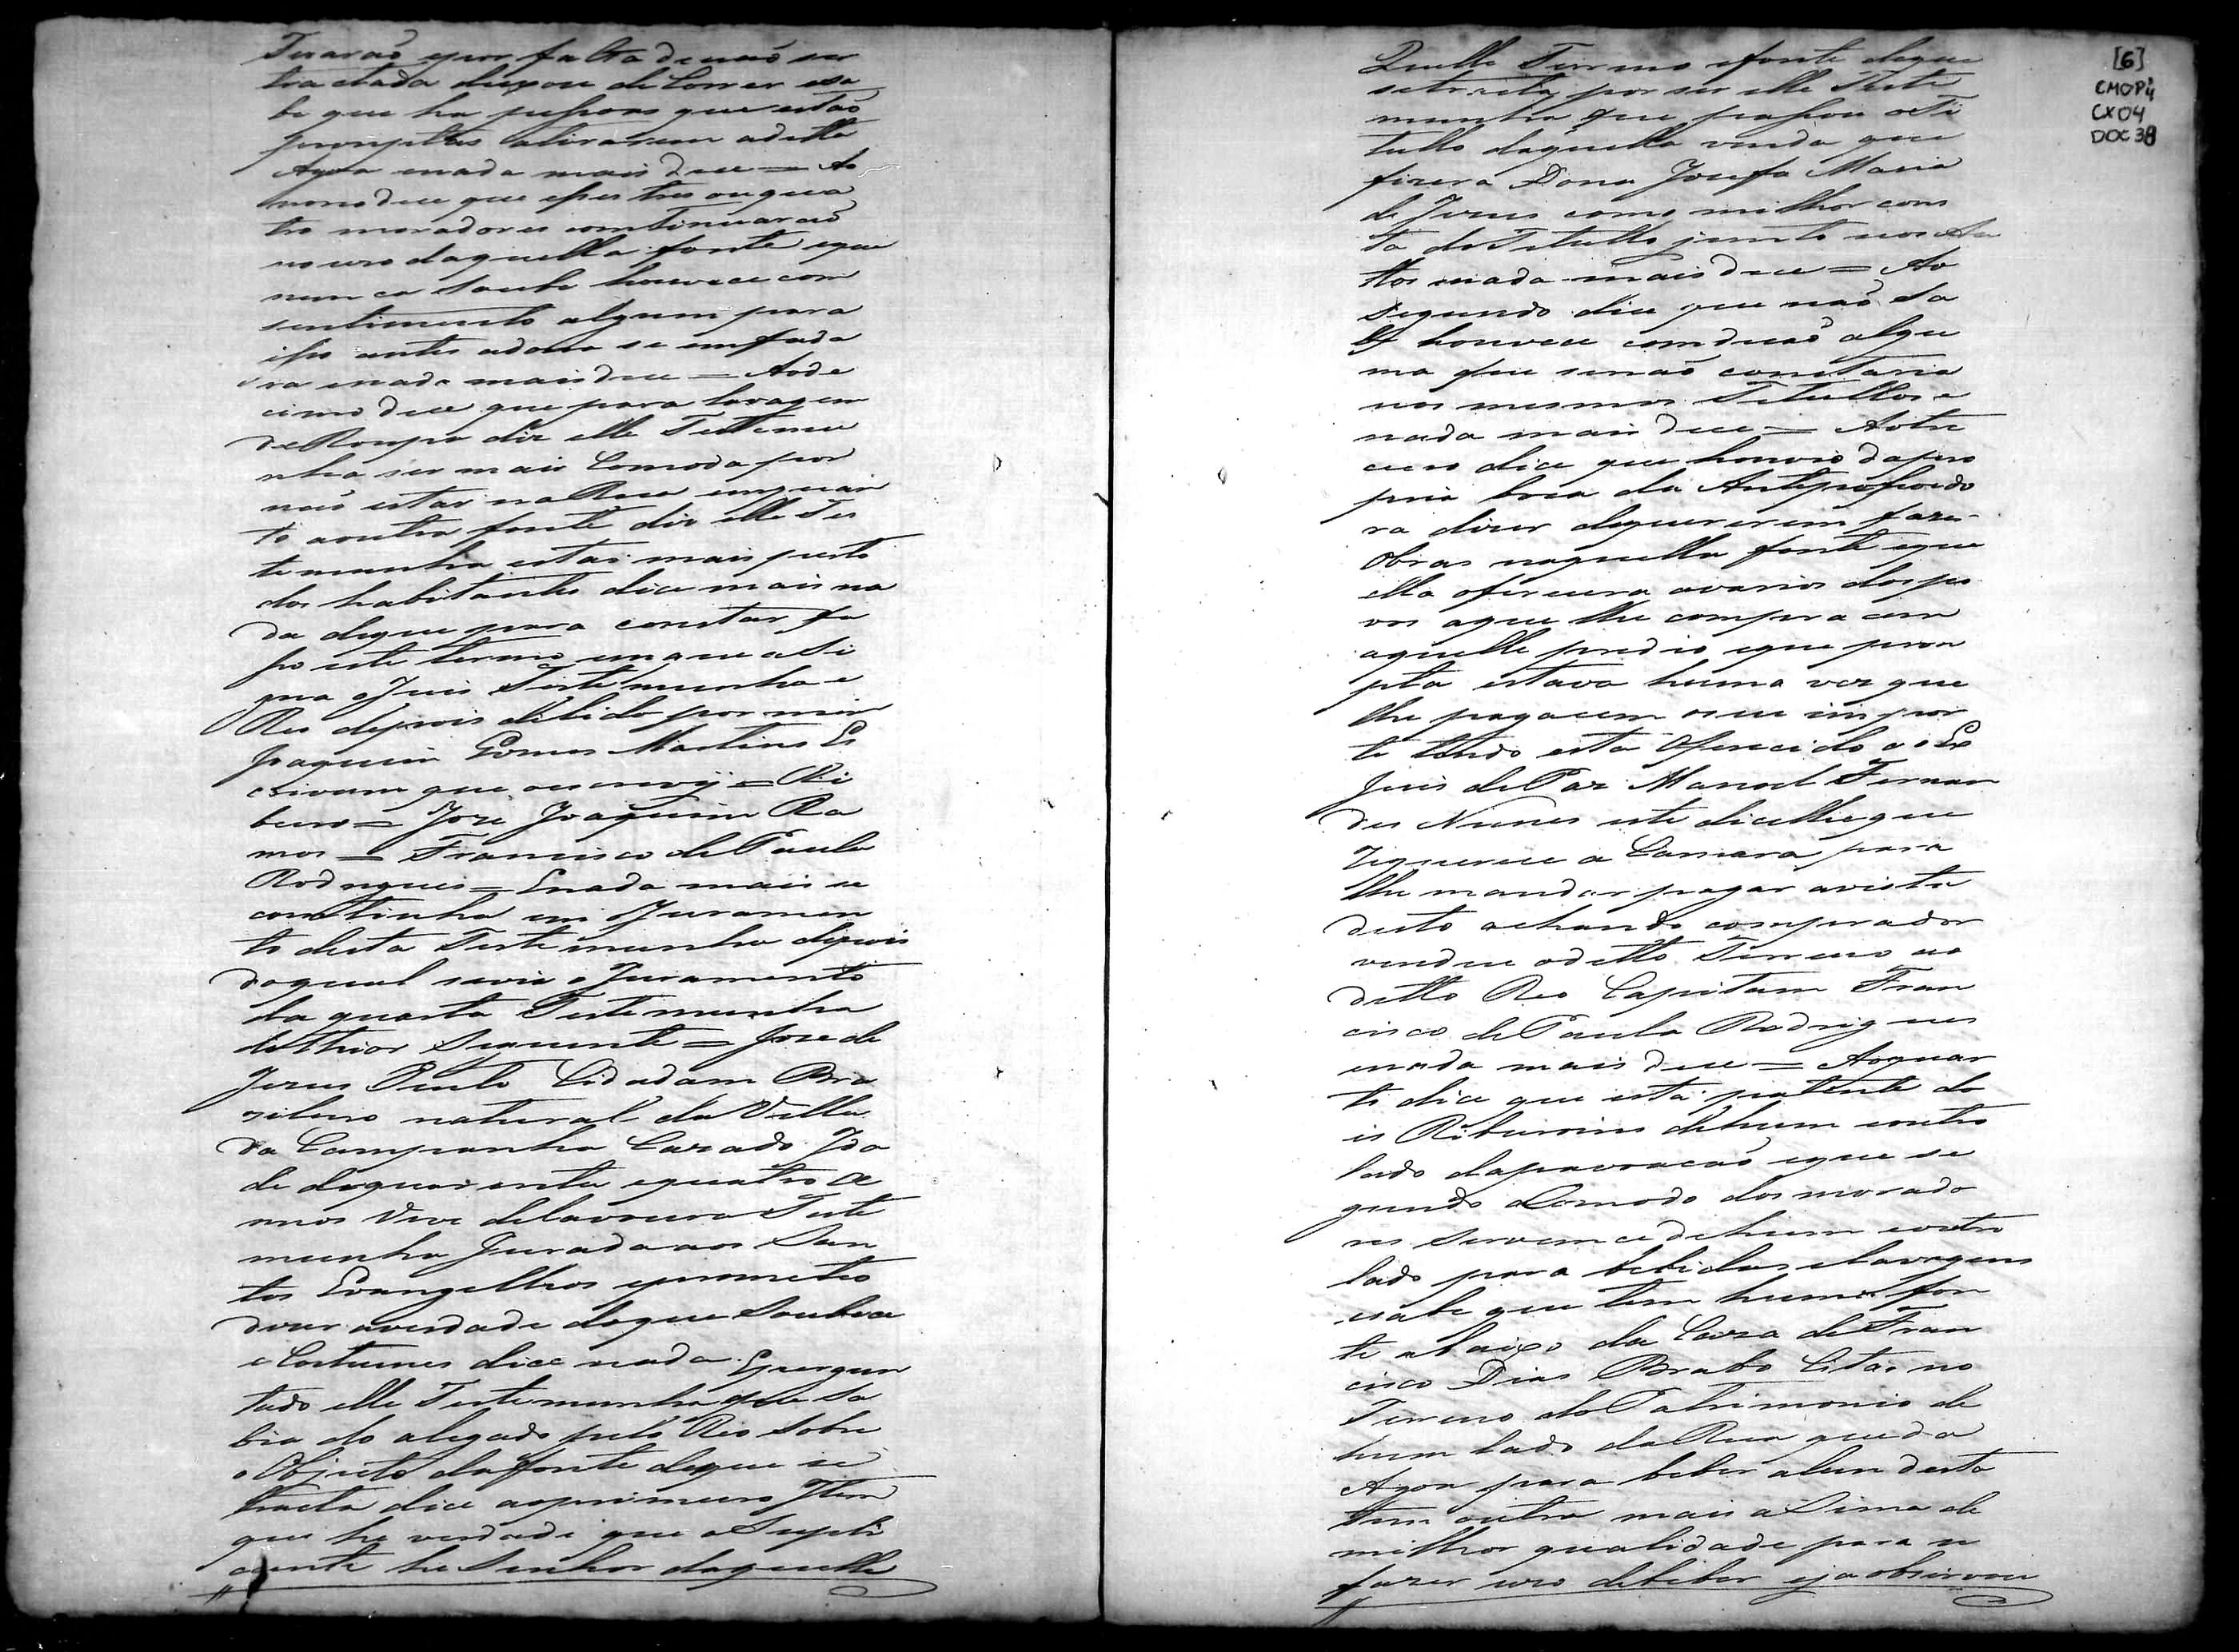 Tirarão epor falta denaõ ser
tractada deixou de Correr esa
be que ha pessoas que estão
promptas atirarem aditta
Agoa enada mais dice = Ao
nono dice que esses tres ouqua
tro moradores continuarão
no uzo daquella fonte eque
nunca Soube houvece com
sentimento algum para
isso antes adona se emfada
va enada mais dice = Aode
cimo dice que para lavagem
deRoupa diz elle Testemu
nha ser mais Comoda por
naõ estar na Rua emquan
to aoutra fonte diz elle Tes
temunha estar mais perto
dos habitantes dice mais na
da deque para constar fa
ço este termo emque aSi
gna oJuis Testemunha e
Reo depois delido por mim
Joaquim Gomes Martins Es
crivam que oescrevy = Ri
beiro = Joze Joaquim Ra
mos = Francisco de Paula
Rodrigues = Enada mais se
continha em oJuramen
to desta Testemunha depois
doqual se via oJuramento
da quarta Testemunha
dotheor Seguinte = Joze de
Jezus Pinto Cidadam Bra
zileiro natural da Villa
da Campanha Cazado Ida
de dequarenta equatro A
nnos Vive delavoura Teste
munha Jurada aos San
tos Evangelhos eprometeo
dizer averdade doque Soubece
e Costumes dice nada. Epergun
tado elle Testemunha que Sa
bia do alegado pelo Reo Sobre
o Objecto dafonte deque se
tracta dice aoprimeiro Item
que he verdade que o Supli
cante he Senhor daquelle
Quelle Terreno efonte deque
setracta por ser elle Teste
munha que passou oTi
tullo daquella venda que
fizera Dona Jozefa Maria
de Jezus como milhor cons
ta do Titullo junto nos Au
ttos enada mais dice = Ao
segundo dice que naõ Sa
be houvece comdicaõ algu
ma que senaõ constaria
nos mesmos Titullos e
nada mais dice = Aoter
ceiro dice que houvio dapro
pria boca da Antepossuido
ra dizer dequererem fazer
Obras naquella fonte eque
ella oferecera avarios dospo
vos aque lhe compracem
aquelle predio eque prom
pta estava huma ves que
lhe pagacem oseu impor
te tendo esta Oferecido ao Ex
Juis de Paz Manoel Fernan
des Nunes este dicelhe que
requerece a Camara para
lhe mandar pagar avista
disto achando comprador
vendeu oditto Terreno ao
ditto Reo Capitam Fran
cisco de Paula Rodrigues
enada mais dice = Aoquar
to dice que esta patente do
is Riberoins dehum eoutro
lado dapovoacaõ eque se
gundo oComodo dos morado
res Servemce dehum eoutro
lado para bebidas elavagens
esabe que tem huma fon
te abaixo da Caza de Fran
cisco Dias Brabo Citas no
Terreno do Patrimonio de
hum lado da Rua queda
Agoa para beber alem desta
tem outra mais aSima de
milhor qualidade para se
fazer uzo debeber ejaobservou
[6]
CMOP
CX 04
DOC 38